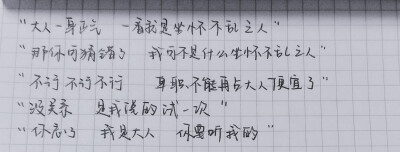 “大人一身正气 一看就是坐怀不乱之人”
“那你可猜错了 我可不是什么坐怀不乱之人”
“不行不行不行 卑职不能再占大人便宜了”
“没关系 是我说的试一次”
“你忘了 我是大人 你要听我的”